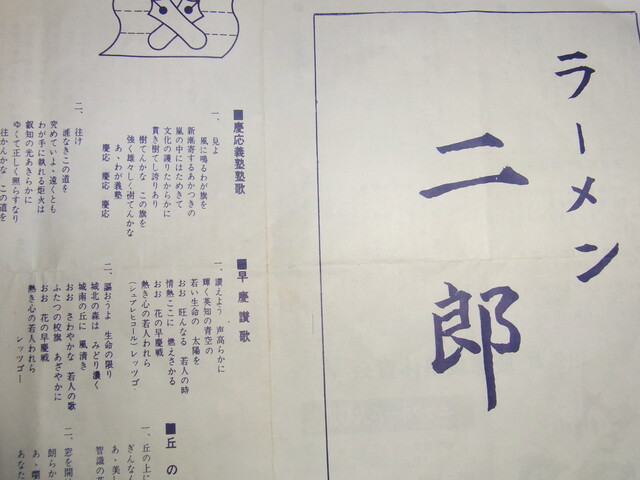 ラーメン
二郎
■慶応義塾塾歌
一、見よ
風に鳴るわが旗を
新潮寄するあかつきの
嵐の中にはためきて
文化の護りたからかに
貫き樹てし誇りあり
樹てんかな この旗を
強く雄々しく樹てんかな
あゝわが義塾
慶応 慶応 慶応
二、往け
涯なきこの道を
究めていよゝ遠くとも
わが手に執れる炬火は
叡知の光あきらかに
ゆくて正しく照らすなり
往かんかな この道を
■早慶讃歌
一、讃えよう 声高らかに
輝く英知の青空の
若い生命の 太陽を
おお 旺んなる 若人の時
情熱ここに 燃えさかる
おお 花の早慶戦
熱き心の若人われら
(シュプレヒコール)レッツゴ
二、謳おうよ 生命の限り
城北の森は みどり濃く
城南の丘に 風清き
おお さわやかな 若人の歌
ふたつの校旗 あざやかに
おお 花の早慶戦
熱き心の若人われら
レッツゴー
■丘の
一、丘の上に
ぎんなん
あゝ美し
智識の
二、窓を開
朗らか
あゝ
あなた